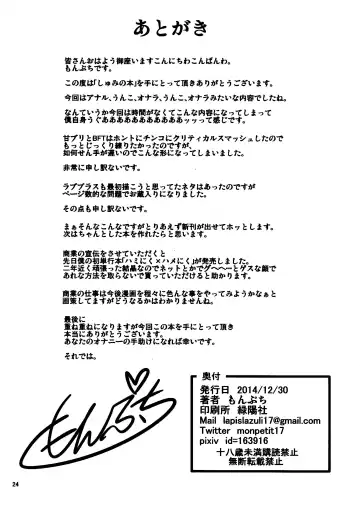 あとがき
皆さんおはよう御座いますこんにちわこんばんわ。
もんぷちです。
この度は「しゅみの本」を手にとって頂きありがとうございます。
今回はアナル、うんこ、オナラ、うんこ、オナラみたいな内容でしたね。
なんていうか今回は時間がなくてこんな内容になってしまいまし
僕自身うぐあああああああああああッッッって感じです。
甘ブリとBFTはホントにチンコにクリティカルスマッシュしたので
もっとじっくり練りたかったのですが、
如何せん手が遅いのでこんな形になってしまいました。
非常に申し訳ないです。
ラブプラスも最初描こうと思ってたネタはあったのですが
ページ数的な問題でお蔵入りになりました。
その点も申し訳ないです。
まぁそんなこんなですがとりあえず新刊が出せてホッとします。
次はちゃんとした本を作れたらと思います。
商業の宣伝をさせていただくと
先日僕の初単行本「ハミにく×ハメにく」が発売しました。
二年近く頑張った結晶なのでネットとかでグヘヘーとゲスな顔で
あれな方法を取らないで買っていただけると助かります。
商業の仕事は今後漫画を程々に色んな事をやってみようかなぁと
画策してますがどうなるかはわかりませんね。
最後に
重ね重ねになりますが今回この本を手にとって頂き
本当にありがとうございます。
あなたのオナニーの手助けになれば幸いです。
それでは。
もんぷち
奥付
発行日 2014/12/30
著者 もんぷち
印刷所 緑陽社
Mail lapislazuli17@gmail.com
Twitter monpetit17
pixiv id=163916
十八歳未満購読禁止
無断転載禁止
24